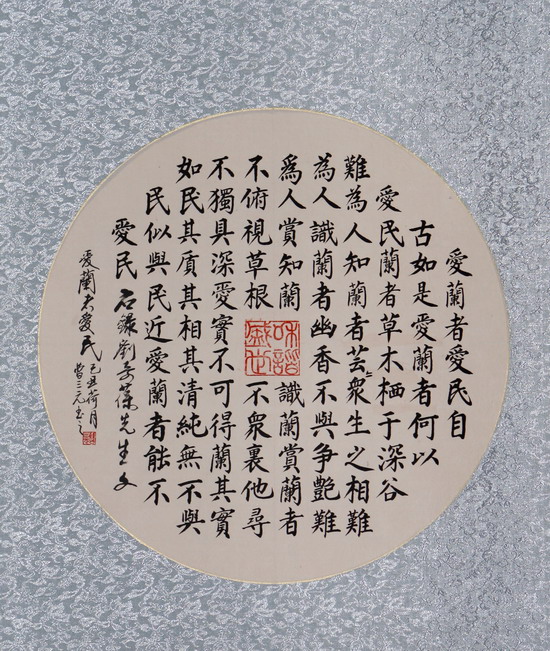 愛蘭者愛民自
古如是愛蘭者何以
愛民蘭者草木栖于深谷
難為人知蘭者芸衆生之相難
為人識蘭者幽香不與争艷難
為人賞知蘭
識蘭賞蘭者
不俯視草根
不衆裏他尋
不獨具深愛實不可得蘭其實
如民其质其相其清純無不與
民似與民近愛蘭者能不
愛民石鏤劉奇葆先生文
愛蘭者愛民
己丑荷月
曾三元书之
和諧
盛世